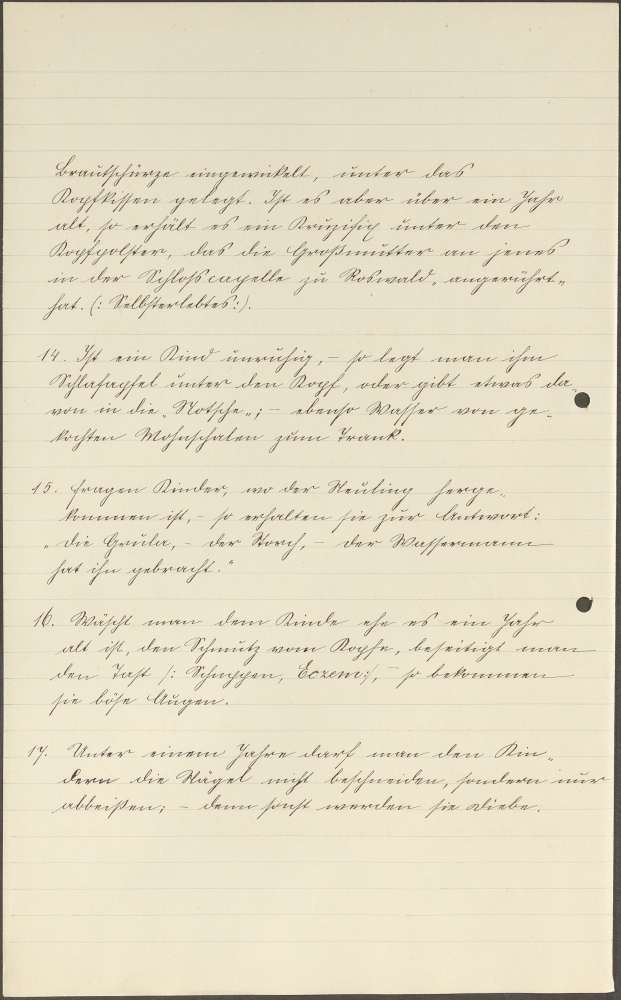 Brautschürze eingewickelt, unter das
Kopfkissen gelegt. Ist es aber über ein Jahr
alt, so erhält es ein Kruzifix unter den
Kopfpolster, das die Großmutter an jenes
in der Schlosscapelle zu Roswald „angerührt„
hat. (: Selbsterlebtes:).
14. Ist ein Kind unruhig, – so legt man ihm
Schlafapfel unter den Kopf, oder gibt etwas da„
von in die „Notsche„; – ebenso Wasser von ge„
kochten Mohnschalen zum Trank.
15. Fragen Kinder, wo der Neuling herge„
kommen ist, – so erhalten sie zur Antwort:
„Die Grula, – der Storch, – der Wassermann
hat ihn gebracht."
16. Wäscht man dem Kinde ehe es ein Jahr
alt ist, den Schmutz vom Kopfe, beseitigt man
den Tast (: Schuppen, Eczem:), – so bekommen
sie böse Augen.
17. Unter einem Jahre darf man den Kin„
dern die Nägel nicht beschneiden, sondern nur
abbeißen; – denn sonst werden sie Diebe.